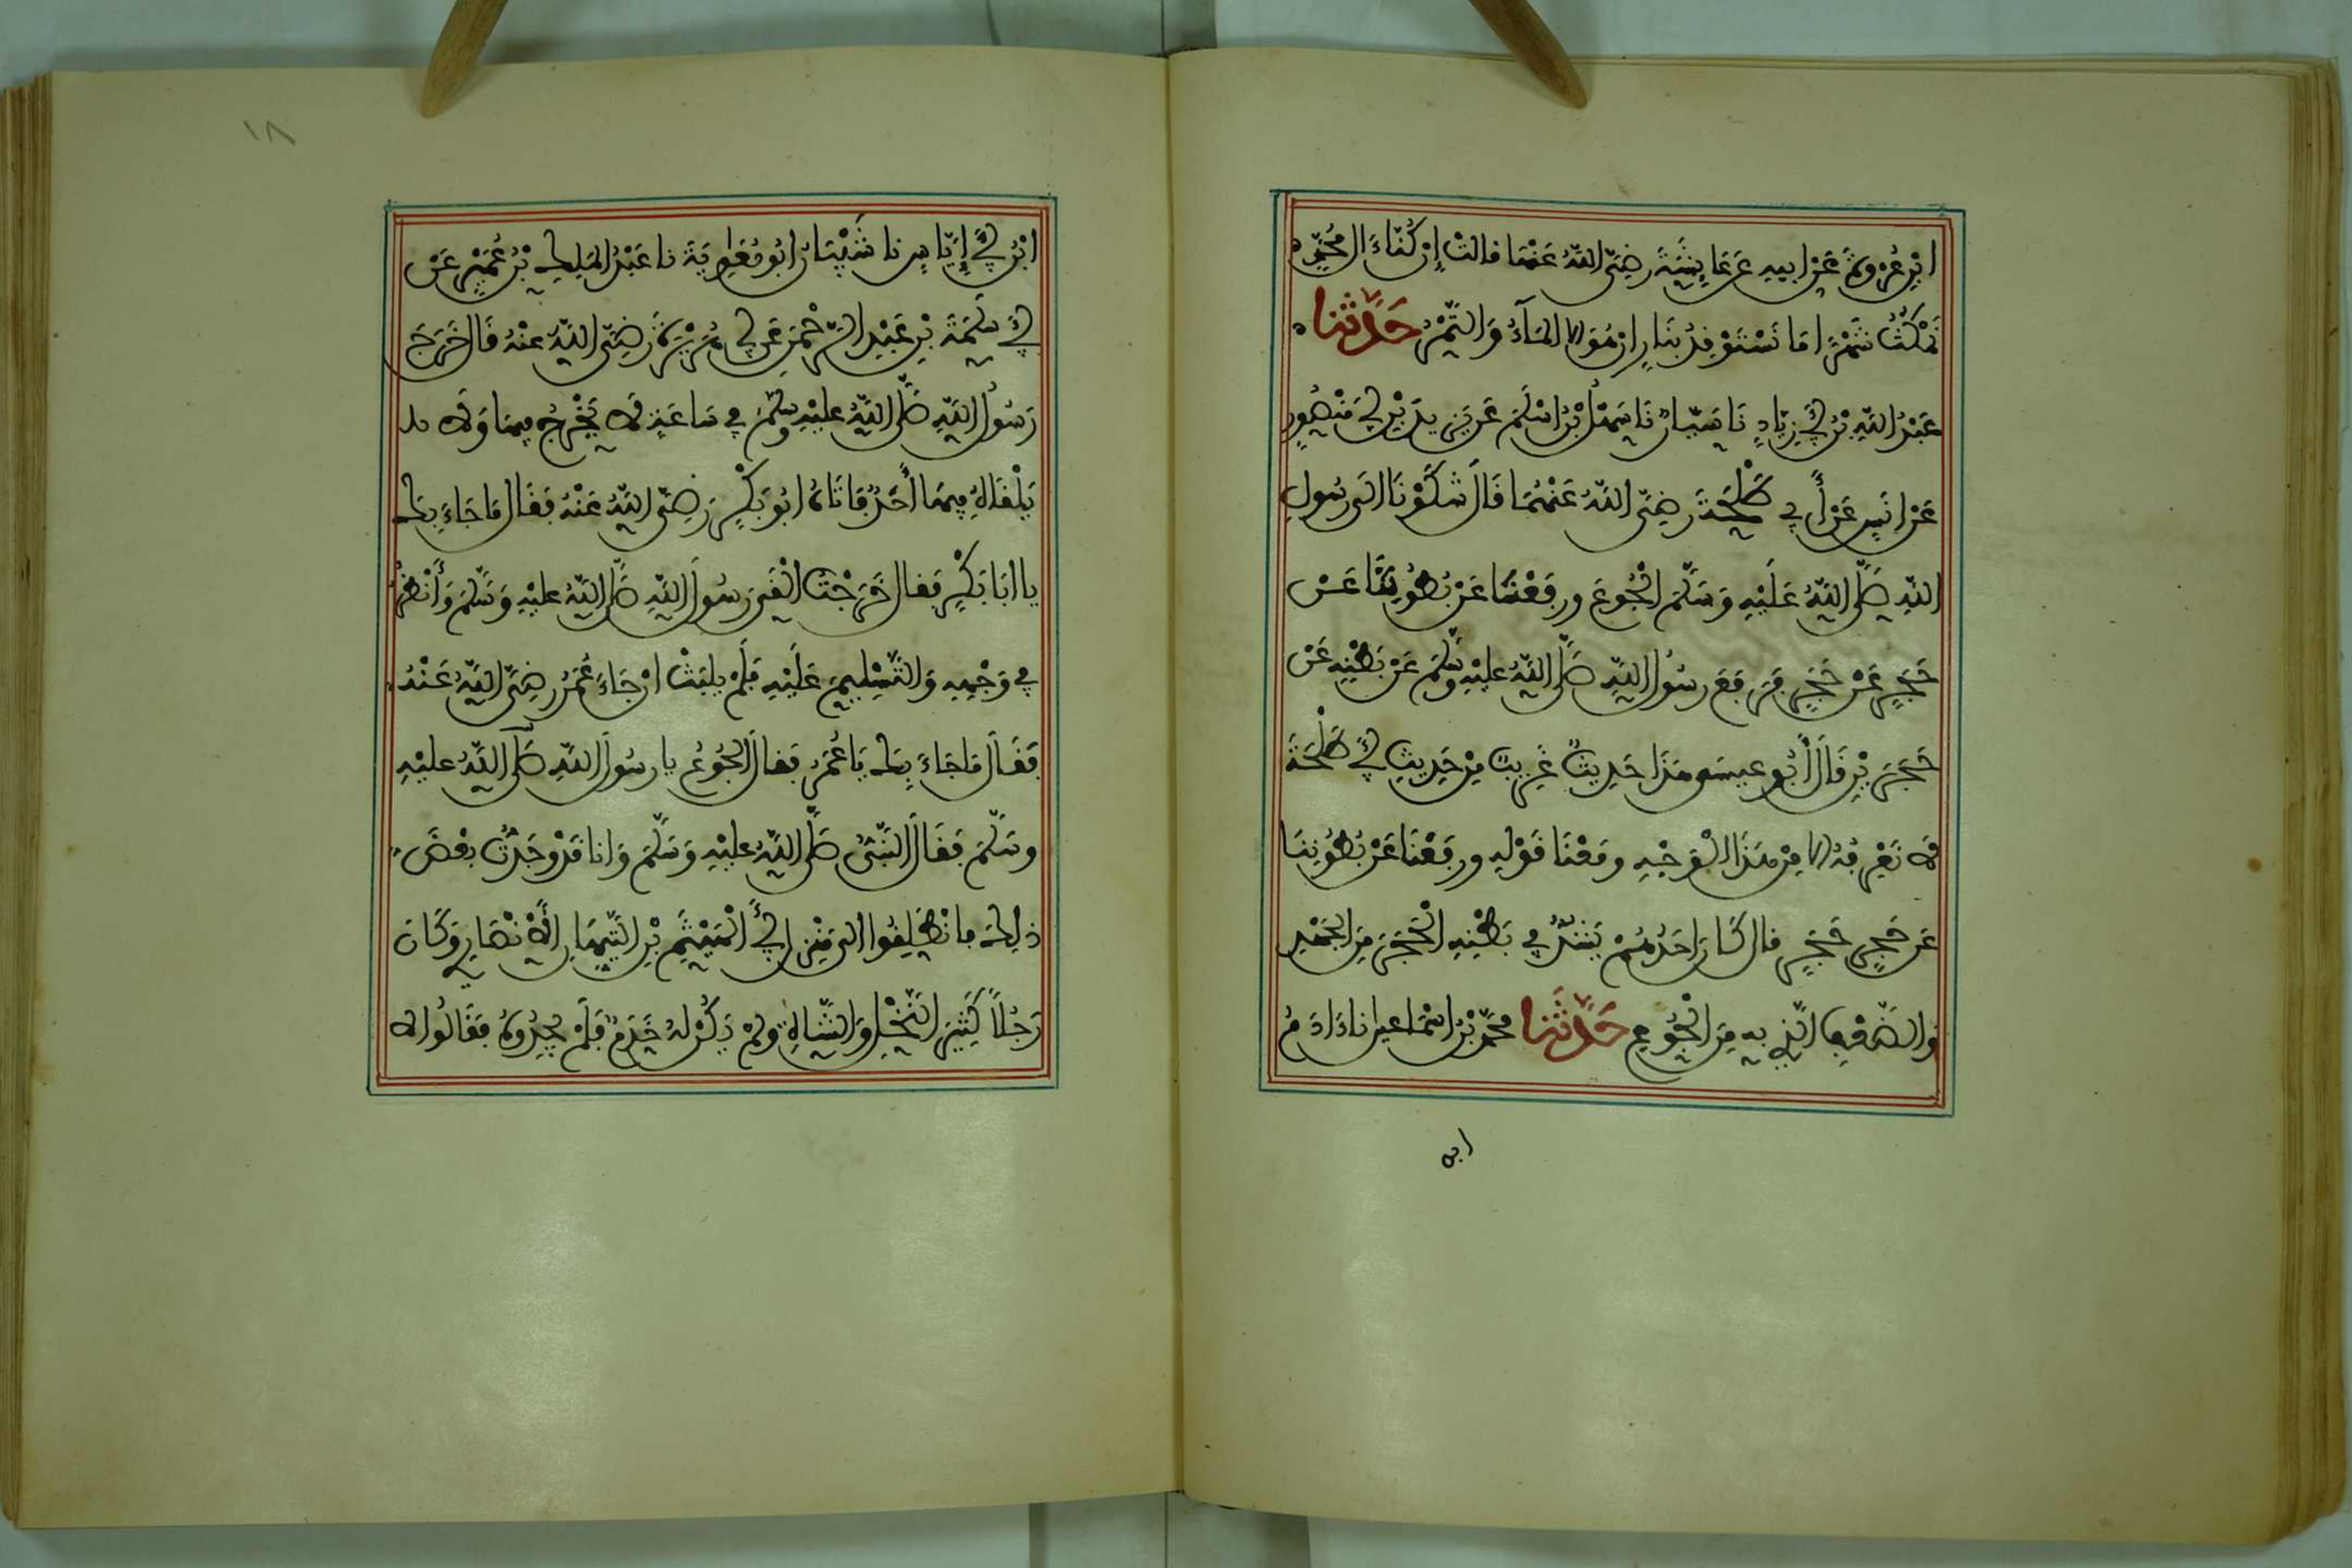 ابْنِ عُرْوَةَ عَنْ ابيهِ عَنْ عَايِشَةَ رَضِيَ اللَّهُ عَنْهَا قالتْ إِنْ كُنَّا ءَالَ مُحَمَّدٍ
نَمْكُثُ شَهْرًا مَا نَسْتَوْقِدُ بِنَارٍ إِنْ هُوَ إلا الْمَآءُ وَالتَّمْرُ حَدَّثَنا
عَبْدُ اللَّهِ بْنُ أَبِي زِيَادٍ نَا سَيَّارٌ نَا سَهْلُ بْنُ اسْلَمَ عَنْ يَزِيدَ بْنِ أَبِي مَنْصُورٍ
عَنْ انَسٍ عَنْ أَبِي طَلْحَةَ رَضِيَ اللَّهُ عَنْهُمَا قَالَ شَكَوْنَا الَى رسُولِ
اللَّهِ صَلَّى اللَّهُ عَلَيْهِ وَسَلَّمَ الْجُوعَ ورفَعْنَا عَنْ بُطُونِنَا عَنْ
حَجَرٍ عَنْ حَجَرٍ فَرَفَعَ رسُولُ اللَّهِ صَلَّى اللَّهُ عليْهِ وَسَلَّمَ عَنْ بَطْنِهِ عَنْ
حَجَرَيْنِ قَالَ أَبُو عيسَى هَذَا حَدِيثٌ غَرِيبٌ مِنْ حَدِيثِ أَبِي طَلْحَةَ
لَا نَعْرِفُهُ إلا مِنْ هَذَا الْوَجْهِ ومَعْنَا قَوْلِهِ ورفَعْنَا عَنْ بُطُونِنَا
عَنْ حَجَرٍ حَجَرٍ قال كَانَ احَدُهُمْ يَشُدُّ فِي بَطْنِهِ الْحَجَرَ مِنَ الْجَهْدِ
وَالضَّعْفِ الَّذِي بِهِ مِنَ الْجُوعِ حَدَّثَنا مُحَمَّدُ بْنُ اسْمَاعِيلَ نَا ءَادَمُ
ابن
١٨
ابْنُ أَبِي إِيَّاسٍ نا شَيْبَانُ ابُو مُعَاوِيَةَ نا عَبْدُ الْمَلِكِ بْنُ عُمَيْرٍ عَنْ
أَبِي سَلَمَةَ بْنِ عَبْدِ الرَّحْمَنِ عَنْ أَبِي هُرَيْرَةَ رَضِيَ اللَّهُ عنْهُ قَالَ خَرَجَ
رَسُولُ اللَّهِ صَلَّى اللَّهُ عليْهِ وَسَلَّمَ فِي سَاعَةٍ لَا يَخْرُجُ فِيهَا وَلَا
يَلْقَاهُ فِيهَا أَحَدٌ فَاتَاهُ ابُو بَكْرٍ رَضِيَ اللَّهُ عَنْهُ فَقَالَ مَا جَاءَ بِكَ
يا ابَا بَكْرٍ فَقال خَرَجْتُ الْقَى رَسُولَ اللَّهِ صَلَّى اللَّهُ عليْهِ وَسَلَّمَ وَأَنْظُرُ
فِي وَجْهِهِ وَالتَّسْلِيمَ عَلَيْهِ فَلَمْ يلبَثْ انْ جَاءَ عُمَرُ رَضِيَ اللَّهُ عَنْهُ
فَقَالَ مَا جَاءَ بِكَ يَا عُمَرُ فَقال الْجُوعُ يا رسُولَ اللَّهِ صَلَّى اللَّهُ عليْهِ
وسَلَّمَ فَقَالَ النَّبِيُّ صَلَّى اللَّهُ عليْهِ وَسَلَّمَ وَانا قَدْ وجَدْتُ بعْضَ
ذلِكَ فانْطَلَقُوا الى مَنْزِلِ أَبِي الْهَيْثَمِ بْنِ التَّيِّهَانِ الْأَنْصَارِيِّ وَكَانَ
رَجُلًا كَثِيرَ النَّخْلِ وَالشَّاهِ وَلَمْ يَكُنْ لهُ خَدَمٌ فَلَمْ يَجِدُوهُ فَقَالُوا لا